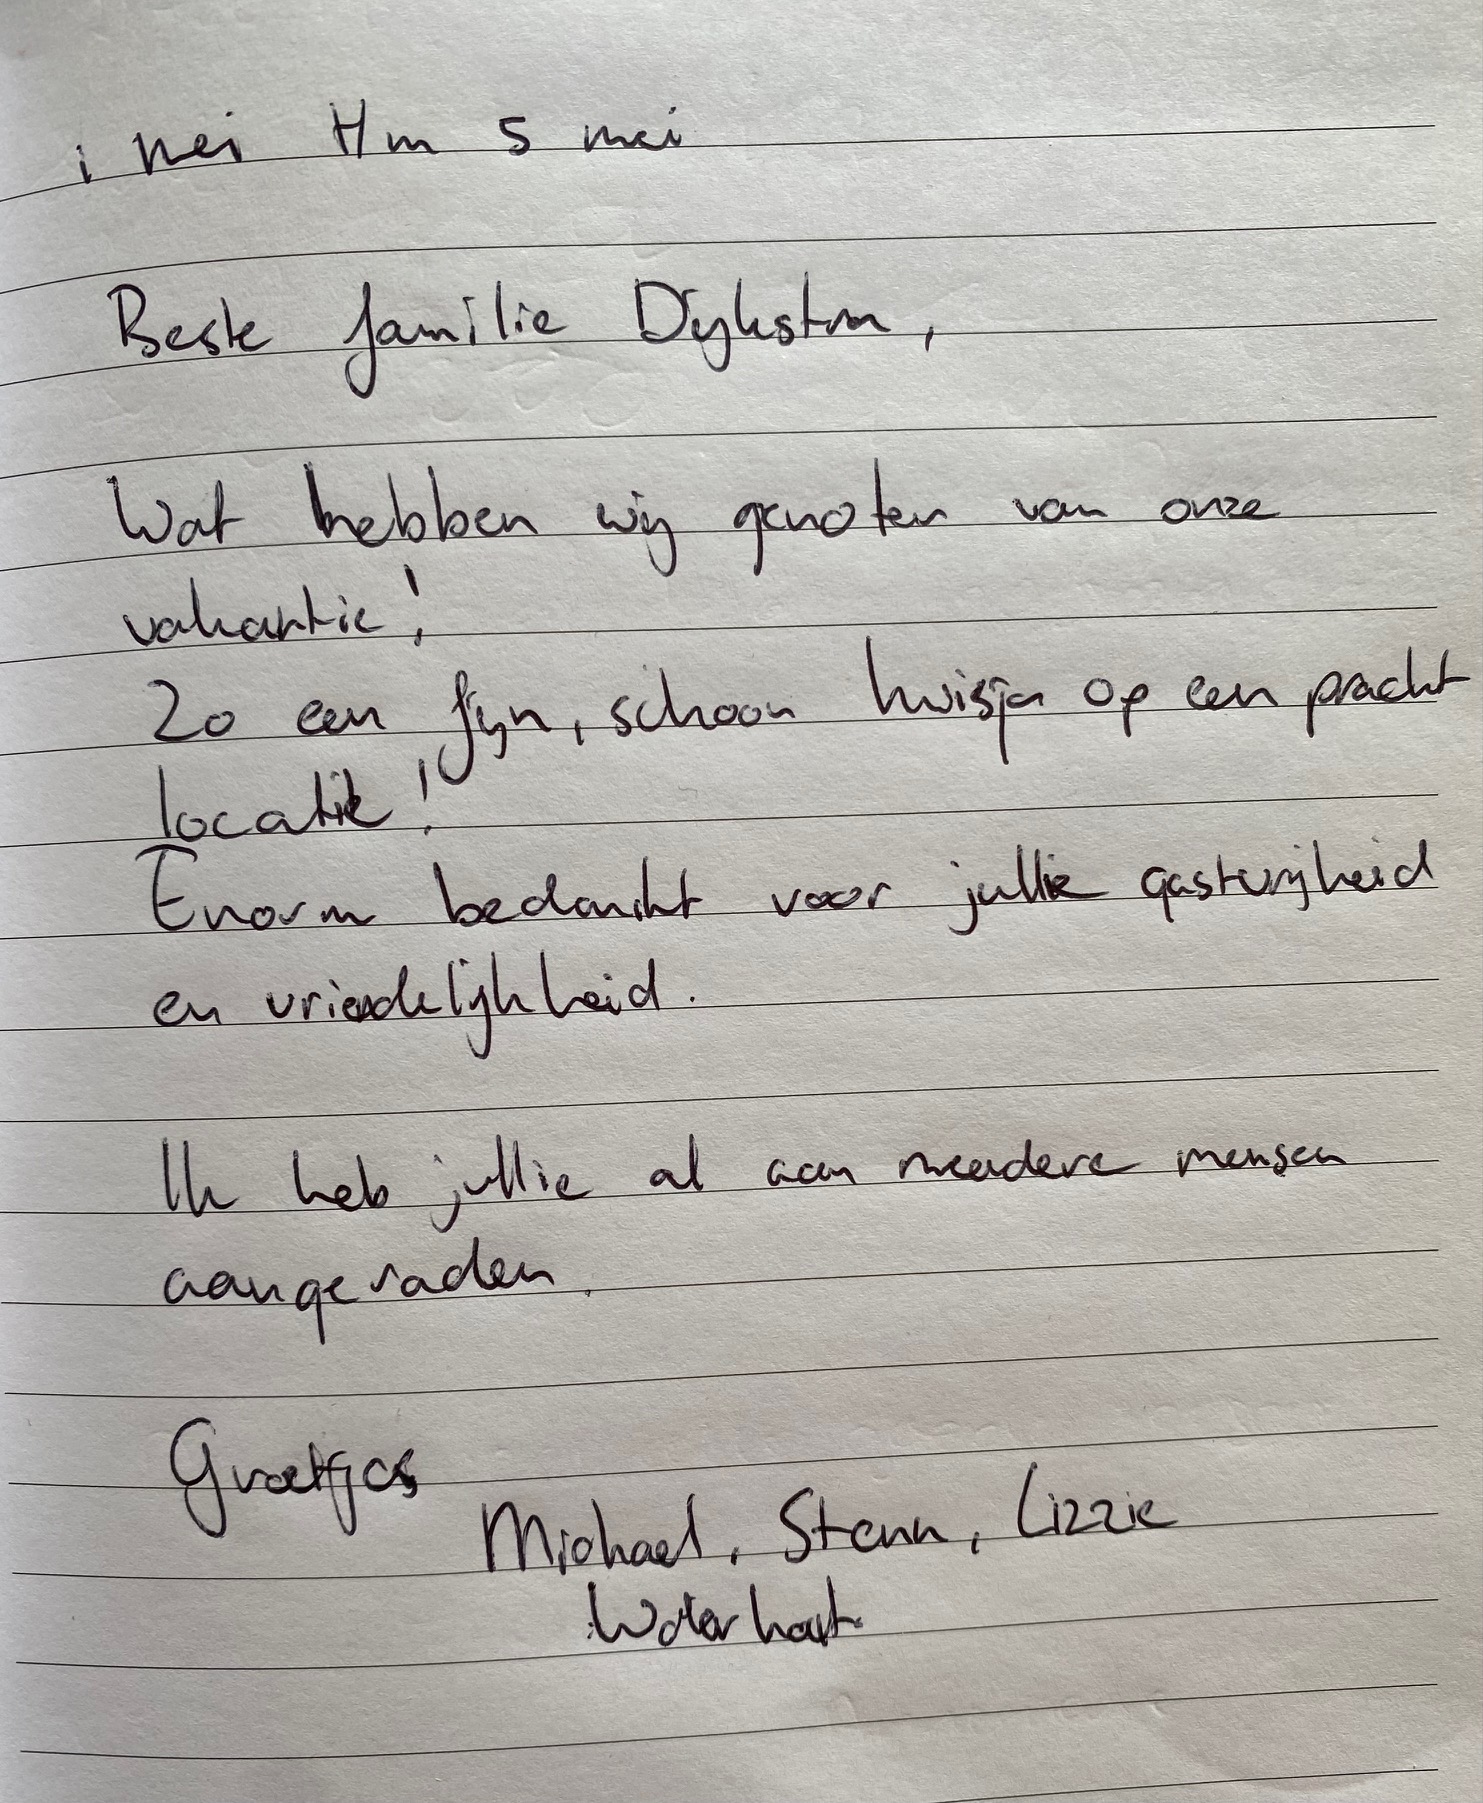 1 mei t/m 5 mei
Beste familie Dijkstra,
Wat hebben wij genoten van onze
vakantie!
Zo een fijn, schoon huisje op een pracht
locatie!
Enorm bedankt voor jullie gastvrijheid
en vriendelijkheid.
Ik heb jullie al aan meerdere mensen
aangeraden.
Groetjes
Michael, Stenn, Lizzie